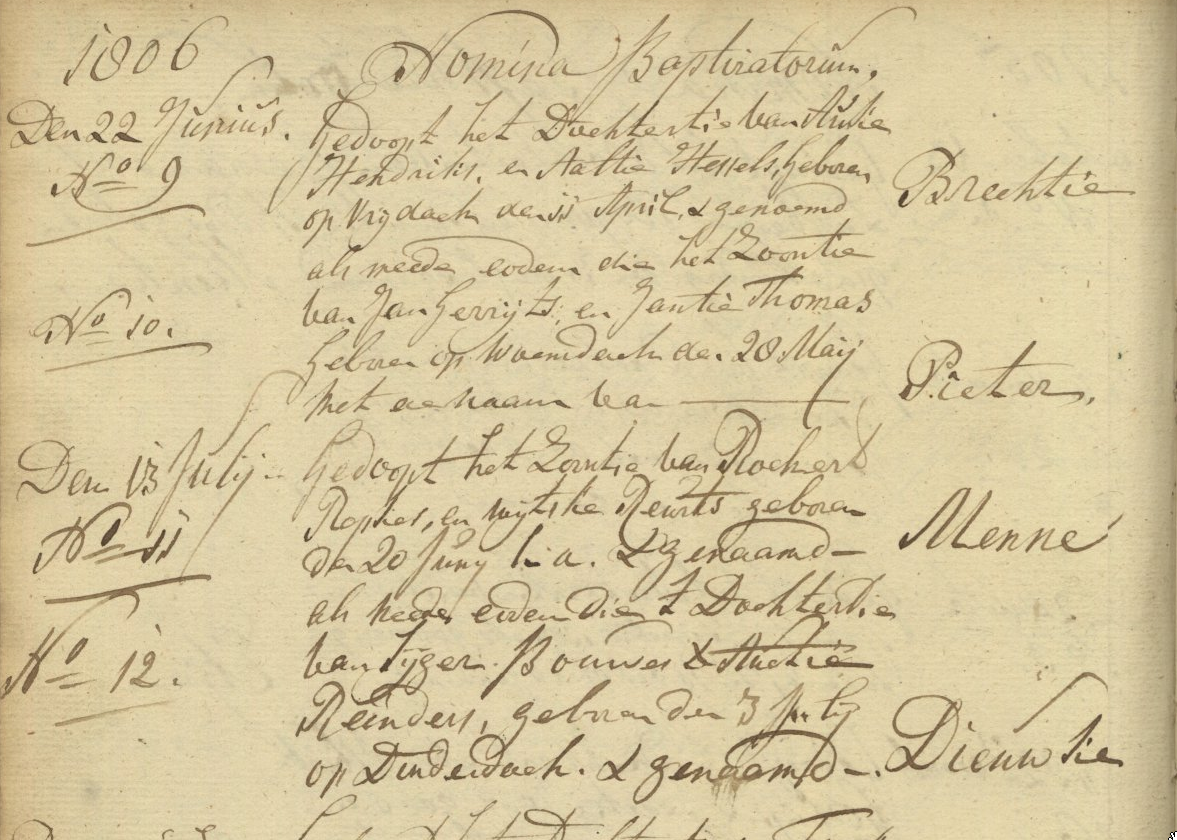 1806 Nomina Baptizatorum.
Den 22 Junius. Gedoopt het Dochtertie van Aukie
No 9 Hendriks, en Aaltie Hessels, geboren
op Vrijdach den 11 April, & genoemd Brechtie
als meede eodem die het Zoontie
No 10. van Jan Gerrijts, en Jantie Thomas
geboren op Woensdach den 28 Maij
met de naam van — Pieter.
Den 13 Julij Gedoopt het Zoontie van
No 11 en Wytske geboren
den 20 Junij h. a. & genaamd — Menne
als meede eodem die 't Dochtertie
No 12. van Tjger Bouwes &
Reinders, geboren den 3 Julij
op Dinderdach. & genaamd —. Dieuwtie